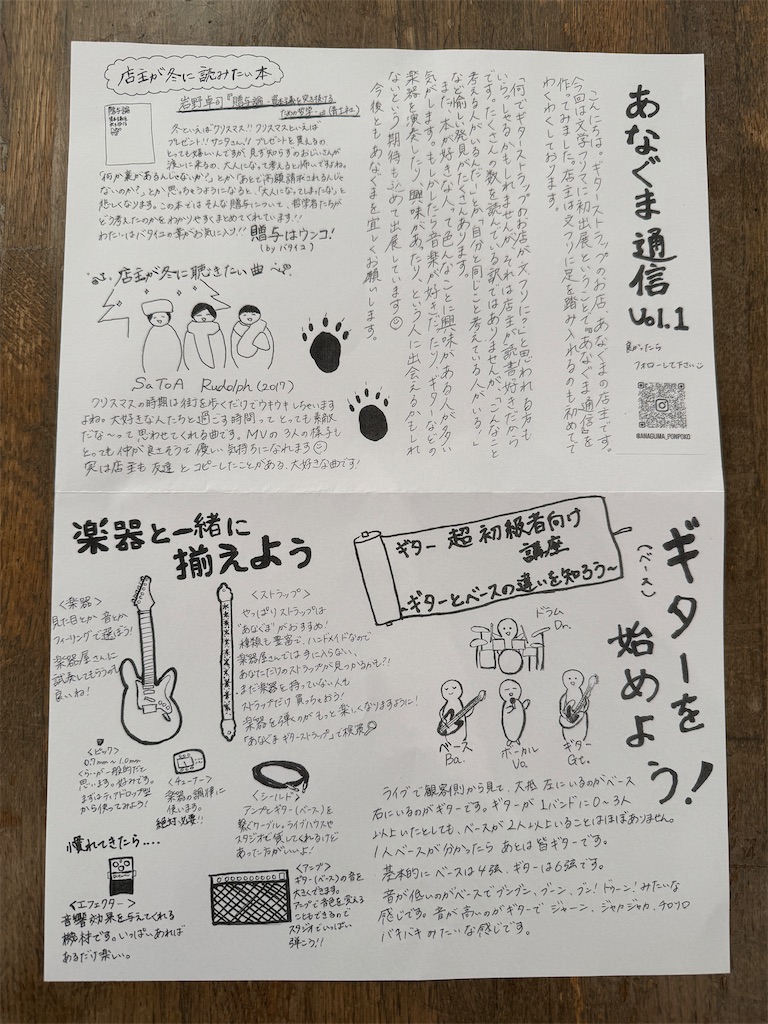 あなぐま通信
vol.1
良かったら
フォローして下さい
@ANAGUMA_PONPOKO
こんにちは、ギターストラップのお店、あなぐまの店主です。
今回は文学フリマに初出展ということで"あなぐま通信"を
作ってみました。店主は文フリに足を踏み入れるのも初めてで
わくわくしております。
「何でギターストラップのお店が文フリに?」と思われる方も
いらっしゃるかもしれませんが、それは店主が読書好きだから
です。たくさんの数を読んでいる訳ではありませんが、「こんなこと
考える人がいるんだ」とか「自分と同じこと考えている人がいる!」
など愉しい発見がたくさんあります。
また、本が好きな人って色んなことに興味がある人が多い
気がします。もしかしたら音楽が好きだったり、ギターなどの
楽器を演奏したり、興味があったり、という人に出会えるかもしれ
ないという期待も込めて出展しています
今後ともあなぐまを宜しくお願いします。
店主が冬に読みたい本
贈与論
岩野卓司『贈与論 資本主義を突き抜ける
ための哲学』(青土社)
冬といえば"クリスマス"!! クリスマスといえば
プレゼント!! サンタさん!! プレゼントを貰えるの
とっても嬉しいんですが、見ず知らずのおじいさんが
渡しに来るの、大人になって考えると怖いですよね。
「何か裏があるんじゃないか?」とか「あとで高額請求されるんじゃ
ないのか?」とか思っちゃうようになると、「大人になってしまったな」と
悲しくなります。この本ではそんな贈与について、哲学者たちが
どう考えたのかをわかりやすくまとめてくれています!!
わたしはバタイユの章がお気に入り!! 贈与はウンコ!
(by バタイユ)
店主が冬に聴きたい曲
SaToA Rudolph (2017)
クリスマスの時期は街を歩くだけでウキウキしちゃいます
よね。大好きな人たちと過ごす時間ってとっても素敵
だな〜って思わせてくれる曲です。MVの3人の様子も
とっても仲が良さそうで優しい気持ちになれます
実は店主も友達とコピーしたことがある、大好きな曲です!
ギターを
(ベース)
始めよう!
ギター 超初級者向け
講座
~ギターとベースの違いを知ろう~
ドラム
Dr.
ベース
Ba.
ボーカル
Vo.
ギター
Gt.
ライブで観客側から見て、大抵左にいるのがベース
右にいるのがギターです。ギターが1バンドに0〜3人
以上いたとしても、ベースが2人以上いることはほぼありません。
1人ベースが分かったらあとは皆ギターです。
基本的にベースは4弦、ギターは6弦です。
音が低いのがベースでブンブン、ブーン、ブン!ドゥーン!みたいな
感じです。音が高いのがギターでジャーン、ジャカジャカ、チロリロ
バキバキみたいな感じです。
楽器と一緒に
揃えよう
<楽器>
見た目とか音とか
フィーリングで選ぼう!
楽器屋さんに
試奏してもらうのも
良いね!
<ストラップ>
やっぱりストラップは
"あなぐま"がおすすめ!
種類も豊富で、ハンドメイドなので
楽器屋さんでは手に入らない、
あなただけのストラップが見つかるかも?!
まだ楽器を持っていない人も
ストラップだけ買っちゃおう!
楽器を弾くのがもっと楽しくなりますように!
「あなぐま ギターストラップ」で検索
<ピック>
0.7mm〜1.0mm
くらいが一般的だと
思います。好みです。
まずはティアドロップ型
から使ってみよう!
<チューナー>
楽器の調律に
使います。
絶対必要!!
<シールド>
アンプとギター(ベース)を
繋ぐケーブル。ライブハウスや
スタジオで貸してくれるけど
あった方がいいよ!
慣れてきたら....
<エフェクター>
音響効果を与えてくれる
機材です。いっぱいあれば
あるだけ楽しい。
<アンプ>
ギター(ベース)の音を
大きくできます。
アンプで音色を変える
こともできるので
スタジオでいっぱい
弾こう!!